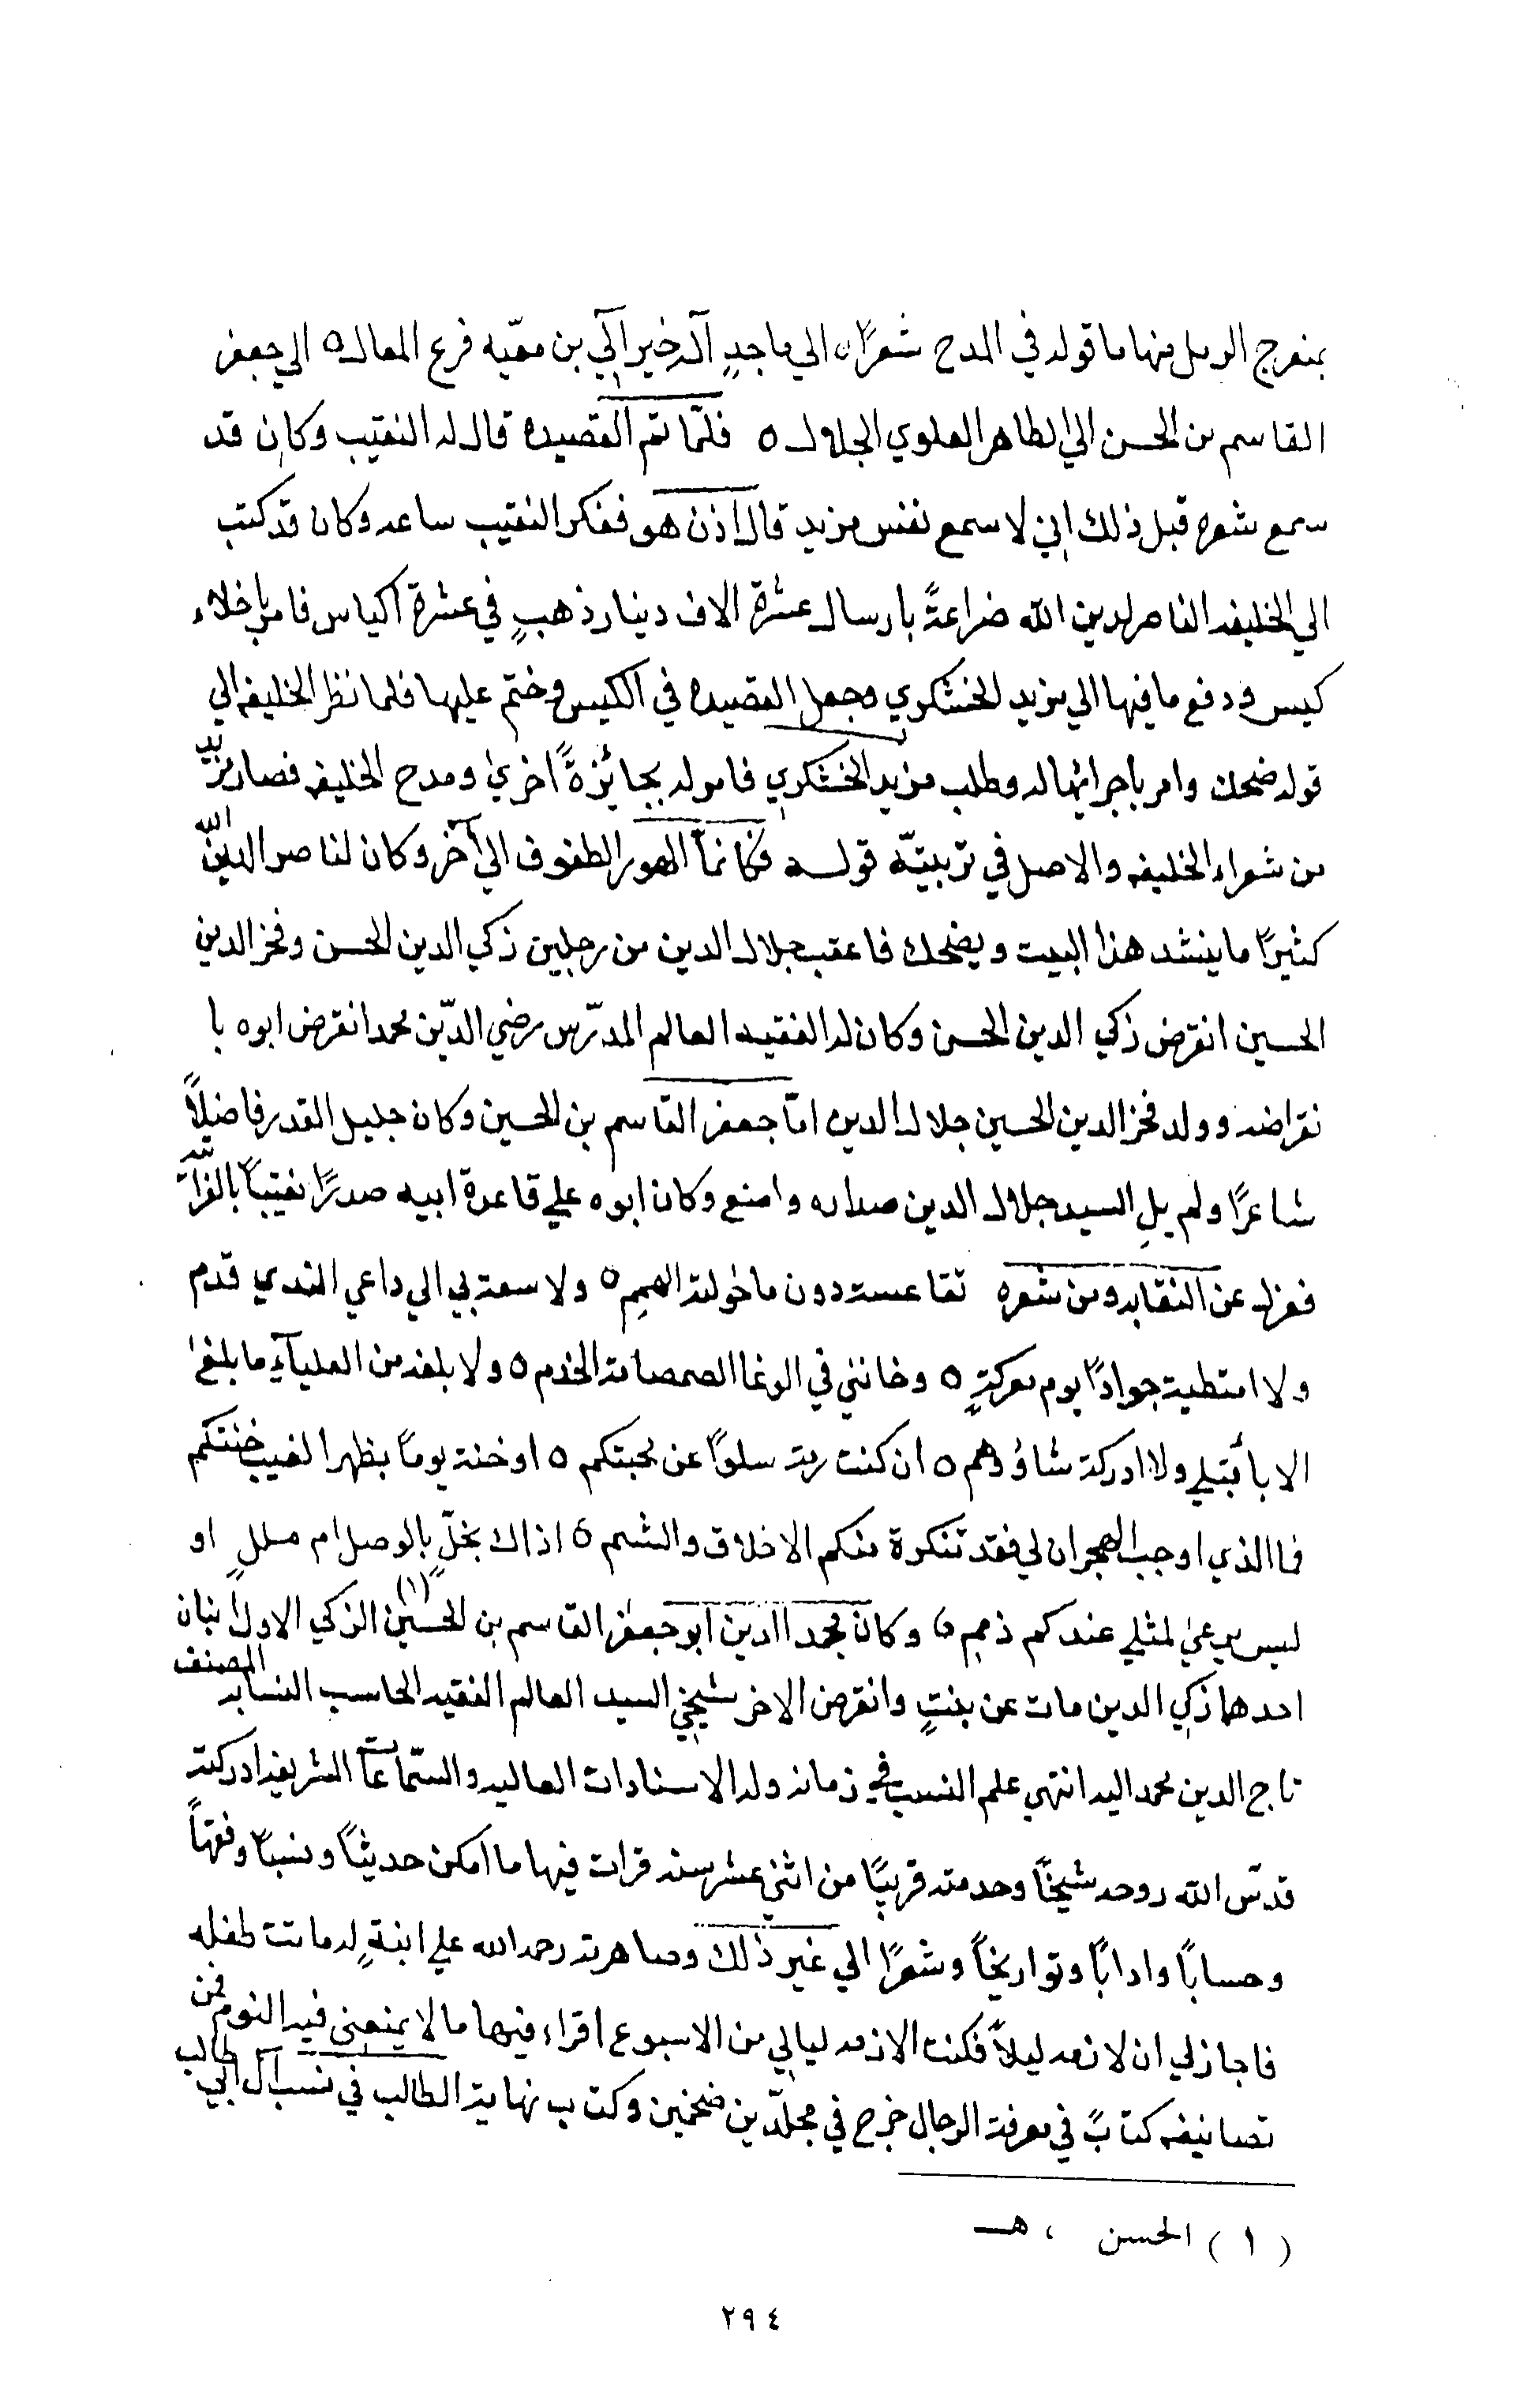 بمنعرج الرمل منها ما قوله في المدح شعرًا ٥ الي ماجدٍ آله خير آلي بن معيّه فرع المعال ٥ الي جعفر
القاسم بن الحسن الي الطاهر العلوي الجلال ٥ فلمّا تم القصيده قال له النقيب وكان قد
سمع شعره قبل ذلك اني لاسمع نفس مزيد قال اذن هو ففكر النقيب ساعه وكان قد كتب
الي الخليفه الناصر لدين الله ضراعةً بارسال عشرة الاف دينار ذهبٍ في عشرة اكياس فامر باخلاء
كيس ودفع ما فيها الي مزيد الخشكري وجعل القصيده في الكيس وختم عليها فلما نظر الخليفه الي
قوله ضحك وامر باجرائها له وطلب مزيد الخشكري فامر له بجائزةً اخري ومدح الخليفه فصار مزيد
من شعراء الخليفه والاصل في تربيتّه قوله فكانمآ الهور الطفوف الي آخر وكان لناصر الدين الله
كثيرًا ما ينشد هذا البيت ويضحك فاعقب جلال الدين من رجلين زكي الدين الحسن وفخر الدين
الحسين انقرض زكي الدين الحسن وكان له الفقيه العالم المدرّس رضي الدّين محمد انقرض ابوه با
نقراضه وولد فخر الدين الحسين جلال الدين امّا جعفر القاسم بن الحسين وكان جليل القدر فاضلاً
شاعرًا ولم يلِ السيد جلال الدين صداره وامنع وكان ابوه علي قاعدة ابيه صدرًا نقيبًا بالفرات
فعزل عن النقابه ومن شعره تقاعسته دون ما خولته الهمِم ٥ ولا سعة بي الي داعي الندي قدم
ولا امتطية جوادًا يوم معركةٍ ٥ وخانني في الوغا الصمصامة الخذم ٥ ولا بلغه من العليآء ما بلغ
الاباء قبلي ولا ادركة شاؤهم ٥ ان كنت رمة سلوًا عن محبتكم ٥ او خنة يومًا بظهر الغيب خنتكم
فما الذي اوجب الهجران لي فقد تنكرة منكم الاخلاق والشيم ٥ اذاك بخلّ بالوصل ام مللٍ او
ليس يرعي لمثلي عندكم ذمم ٥ وكان لمحمد الدين ابو جعفر القاسم بن الحسين (١) الزكي الاول ابنان
احدهما زكي الدين مات عن بنتٍ وانقرض الاخر شيخي السيد العالم الفقيه الحاسب النسابه المصنف
تاج الدين محمد اليه انتهي علم النسب في زمانه وله الاسنادات العاليه والسّماعات الشريفه ادركته
قدّس الله روحه شيخًا وخدمته قريبًا من اثني عشر سنه قرات فيها ما امكن حديثًا ونسبًا وفقهًا
وحسابًا وادابًا وتواريخًا وشعرًا الي غير ذلك وصاهرته رحمه الله علي ابنةٍ له ماتت طفله
فاجاز لي ان لازمه ليلاً فكنت الازمه ليالي من الاسبوع اقراء فيها ما لا يمنعني فيه النوم فمن
تصانيفه كتابً في معرفة الرجال خرج في مجلّدين ضخمين وكتاب نهاية الطالب في نسب آل ابي طالب
(١) الحسن ، هـ
٢٩٤